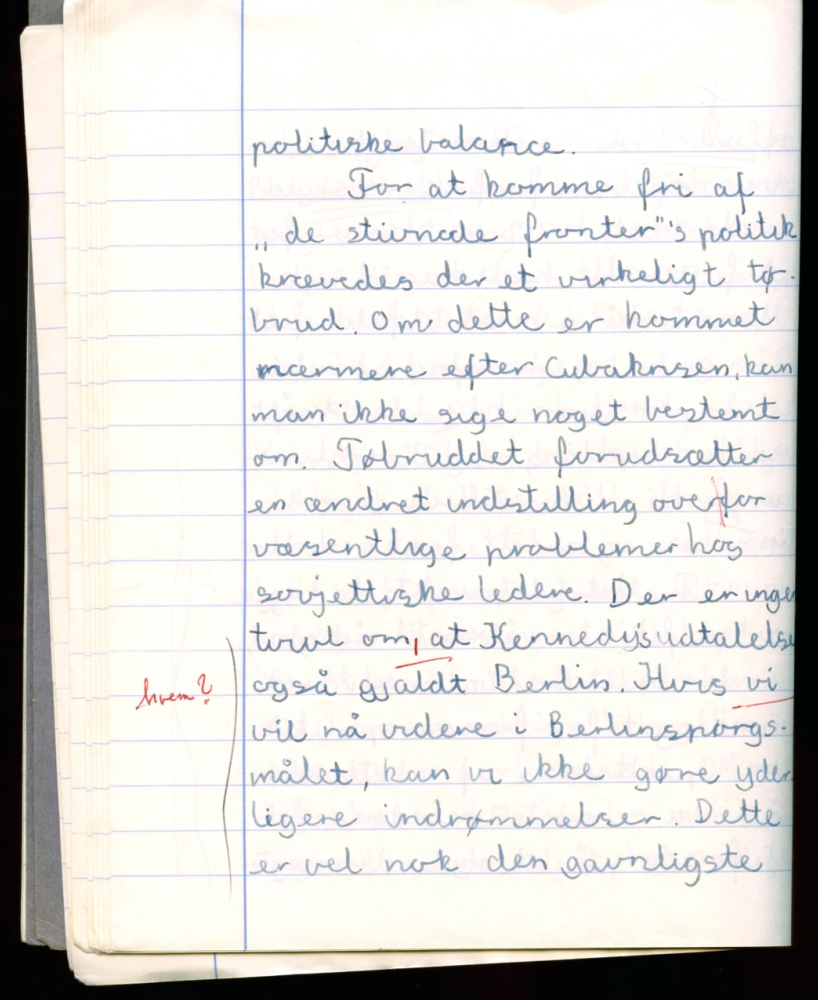 politiske balance.
For at komme fri af
„de stivnede fronter"s politik
krævedes der et virkeligt tø-
brud. Om dette er kommet
nærmere efter Cubakrisen, kan
man ikke sige noget bestemt
om. Tøbruddet forudsætter
en ændret indstilling overfor
væsentlige problemer hos
sovjettiske ledere. Der er ingen
tvivl om, at Kennedys udtalelse
også gjaldt Berlin. Hvis vi
hvem?
vil nå videre i Berlinspørgs-
målet, kan vi ikke gøre yder
ligere indrømmelser. Dette
er vel nok den gavnligste